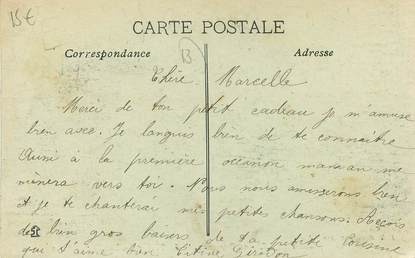 15€
CARTE POSTALE
Correspondance
13
Adresse
Chère Marcelle
Merci de ton petit cadeau je m'amuse
bien avec. Je languis bien de te connaitre
Aussi à la première occasion maman me
mènera vers toi. Nous nous amuserons bien
et je te chanterai mes petites chansons. Reçois
de bien gros baisers de ta petite cousine
qui t'aime bien Titine